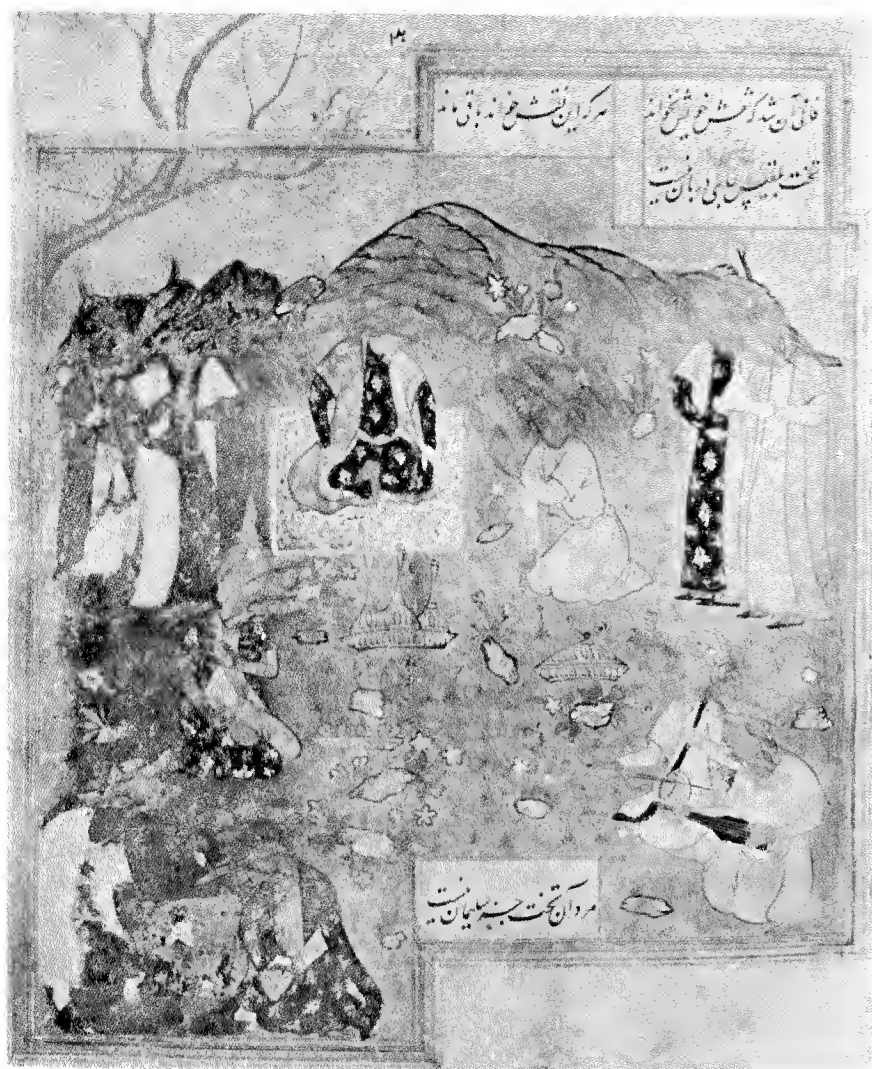 فانی آن شد که نقش خویش نخواند
هر که این نقش خواند باقی ماند
تخت بلقیس جای نیست
مرد آن تخت جز سلیمان نیست